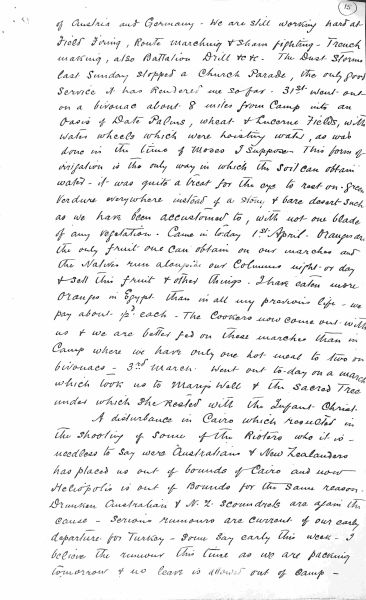 15
of Austria and Germany - We are still working hard at
Field Firing, Route marching & Sham fighting - Trench
making, also Battalion Drill &c &c - The Dust Storms
last Sunday stopped a Church Parade, the only good
service it has rendered me so far - 31st went out
on a bivouac about 8 miles from Camp into an
Oasis of Date Palms, wheat & Lucerne Fields, with
water wheels which were hoisting water, as was
done in the time of Moses I suppose - This form of
irrigation is the only way in which the soil can obtain
water - it was quite a treat for the eye to rest on - green
verdure everywhere instead of a stony & bare desert such
as we have been accustomed to, with not one blade
of any vegetation - Came in today 1st April - Oranges are
the only fruit one can obtain on our marches and
the Natives run alongside our Columns night or day
& sell this fruit & other things. I have eaten more
Oranges in Egypt than in all my previous life - we
pay about ½d each - The Cookers now come out with
us & we are better fed on these marches than in
Camp where we have only one hot meal to two on
bivouacs - 3rd March. Went out to-day on a march
which took us to Mary's Well & the Sacred Tree
under which She Rested with the Infant Christ.
A disturbance in Cairo which resulted in
the shooting of some of the Rioters who it is -
needless to say were Australians & New Zealanders
has placed us out of bounds of Cairo and now
Heliopolis is out of Bounds for the same reason.
Drunken Australian & N.Z. scoundrels are again the
cause - Serious rumours are current of our early
departure for Turkey - Some say early this week - I
believe the rumour this time as we are packing
tomorrow & no leave is allowed out of camp -